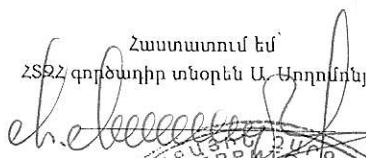 Հաստատում եմ՝
ՀՏԶՀ գործադիր տնօրեն Ա. Սողոմոնյ